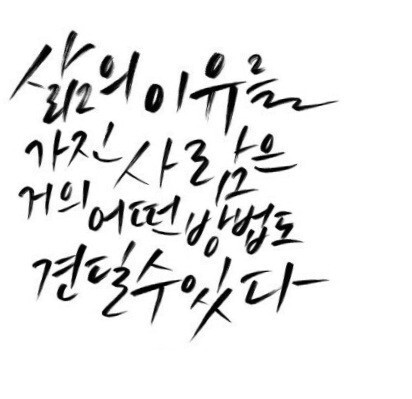 삶의 이유를
가진 사람은
거의 어떤 방법도
견딜 수 있다